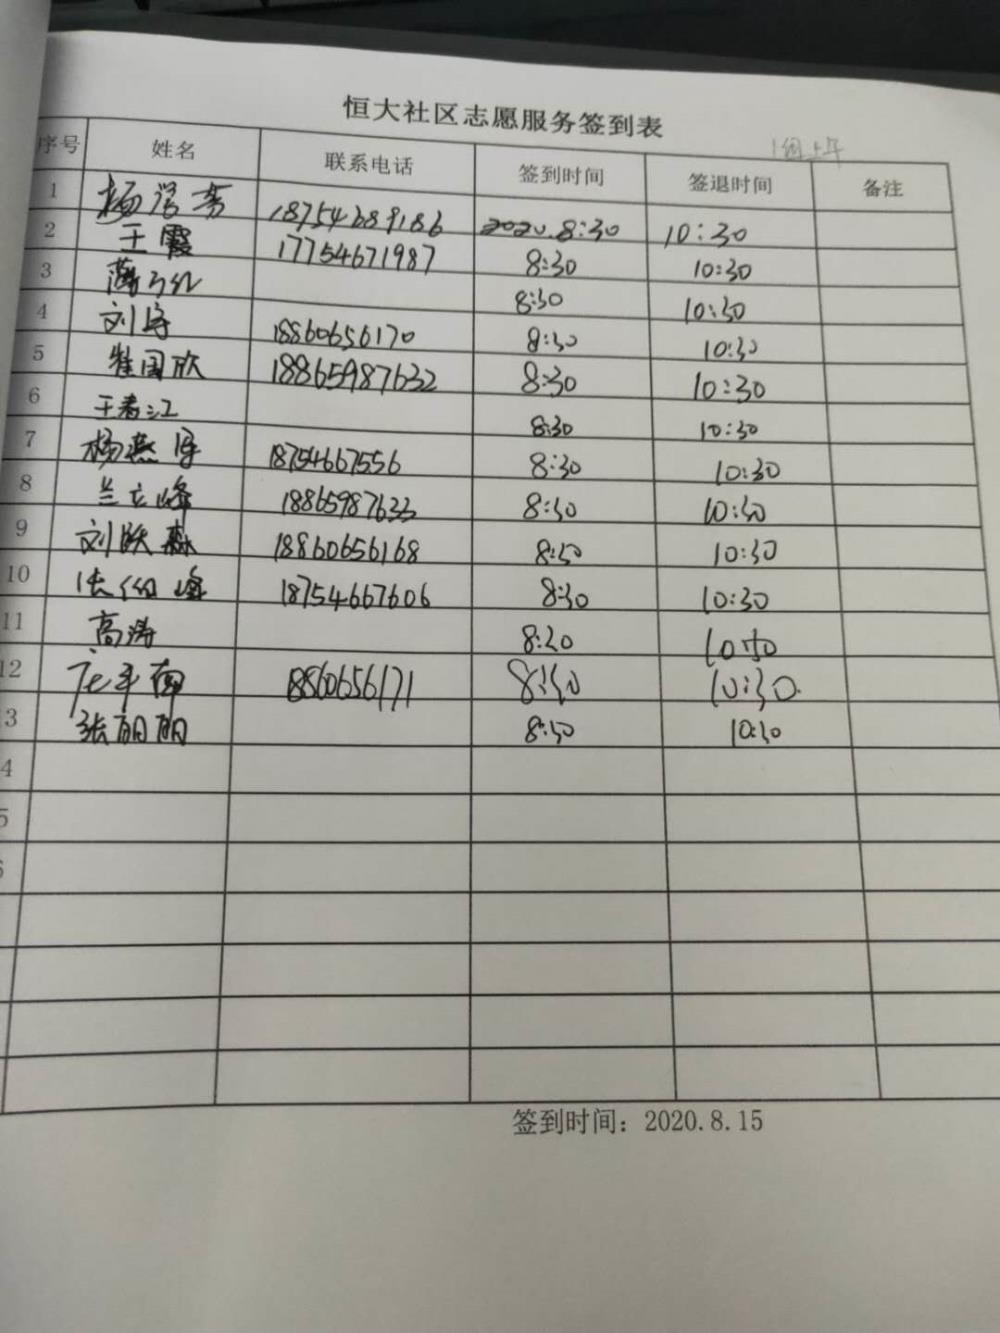 恒大社区志愿服务签到表
序号 姓名 联系电话 签到时间 签退时间 备注
1 杨 18754689186 8:30 10:30
2 王霞 17754671987 8:30 10:30
3 8:30 10:30
4 刘 18860656170 8:30 10:30
5 崔国欣 18865987632 8:30 10:30
6 王春江 8:30 10:30
7 杨燕 18754667556 8:30 10:30
8 兰立峰 18865987633 8:30 10:30
9 刘跃森 18860656168 8:30 10:30
10 18754667606 8:30 10:30
11 高涛 8:30 10:30
12 18860656171 8:30 10:30
3 张丽丽 8:30 10:30
4
5
签到时间：2020.8.15